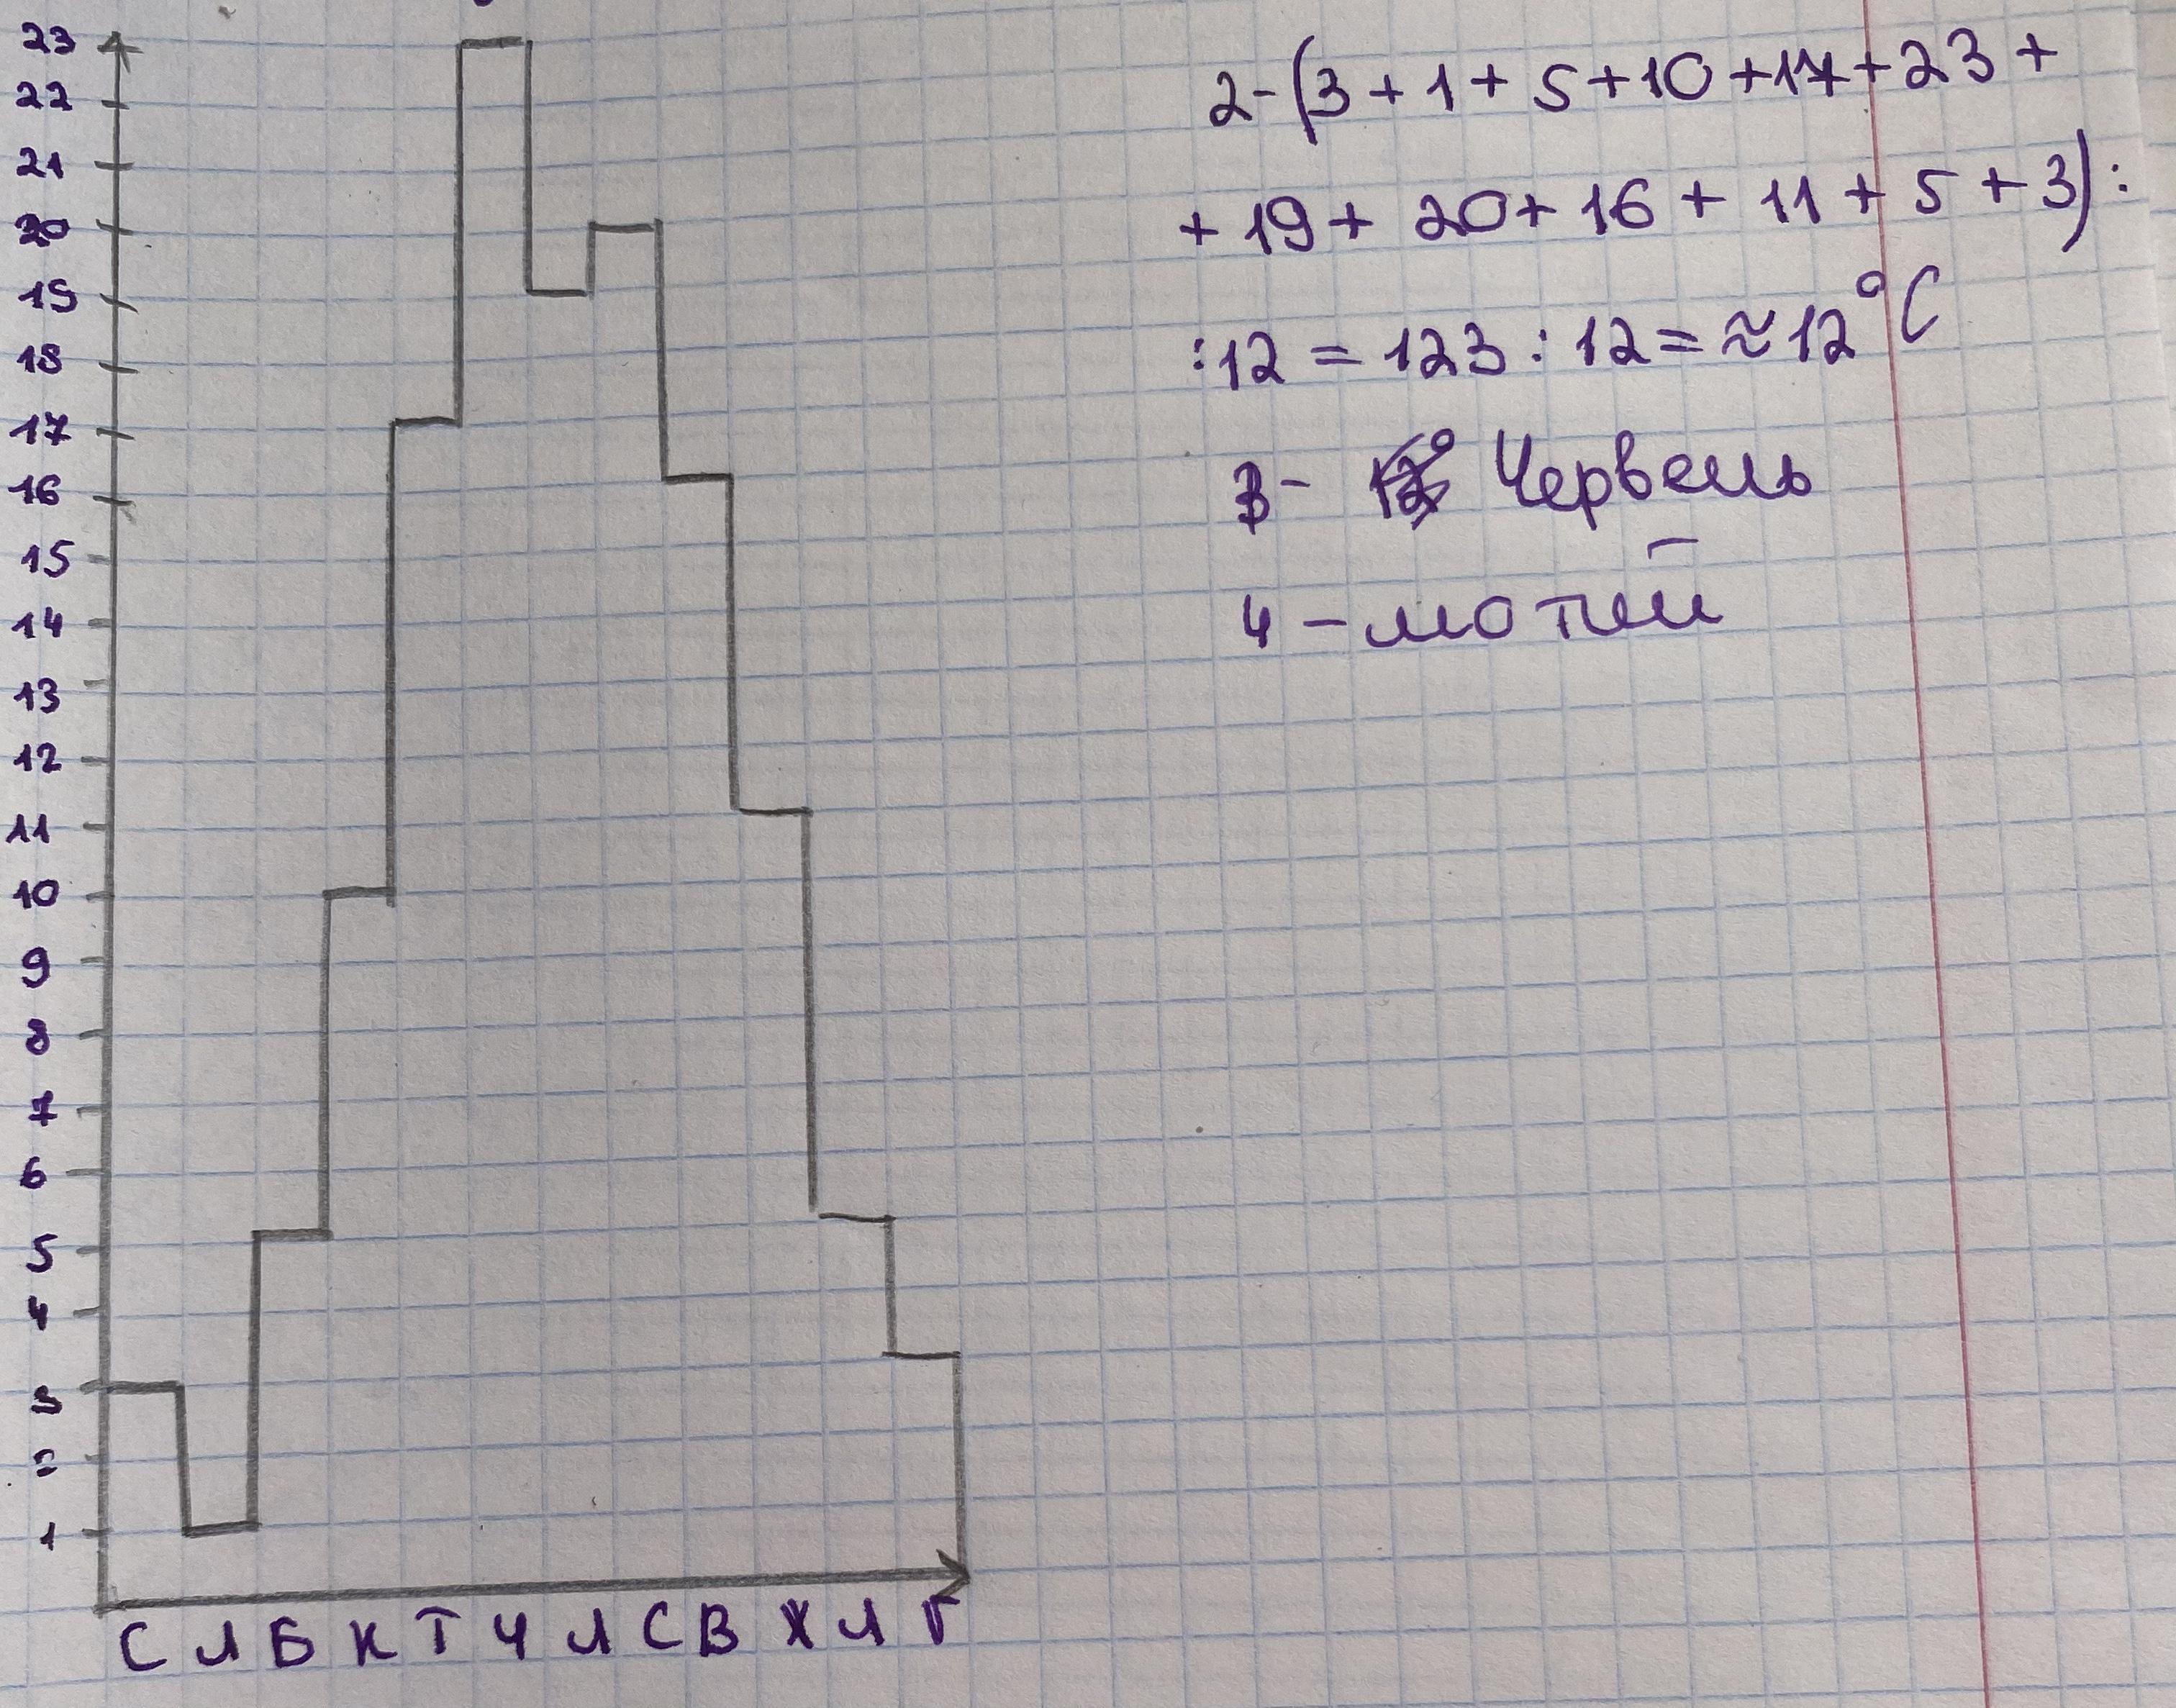 23
22
21
20
19
18
17
16
15
14
13
12
11
10
9
8
7
6
5
4
3
2
1
С Л Б К Т Ч Л С В Ж Л Г
2-(3+1+5+10+17+23+
+19+20+16+11+5+3):
:12=123:12=≈12°C
3- Червень
4-лютий